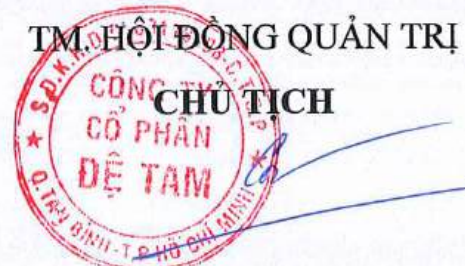 TM. HỘI ĐỒNG QUẢN TRỊ
CHỦ TỊCH
CÔNG TY
CỔ PHẦN
ĐỆ TAM
Q.TÂN BÌNH-T.P HỒ CHÍ MINH